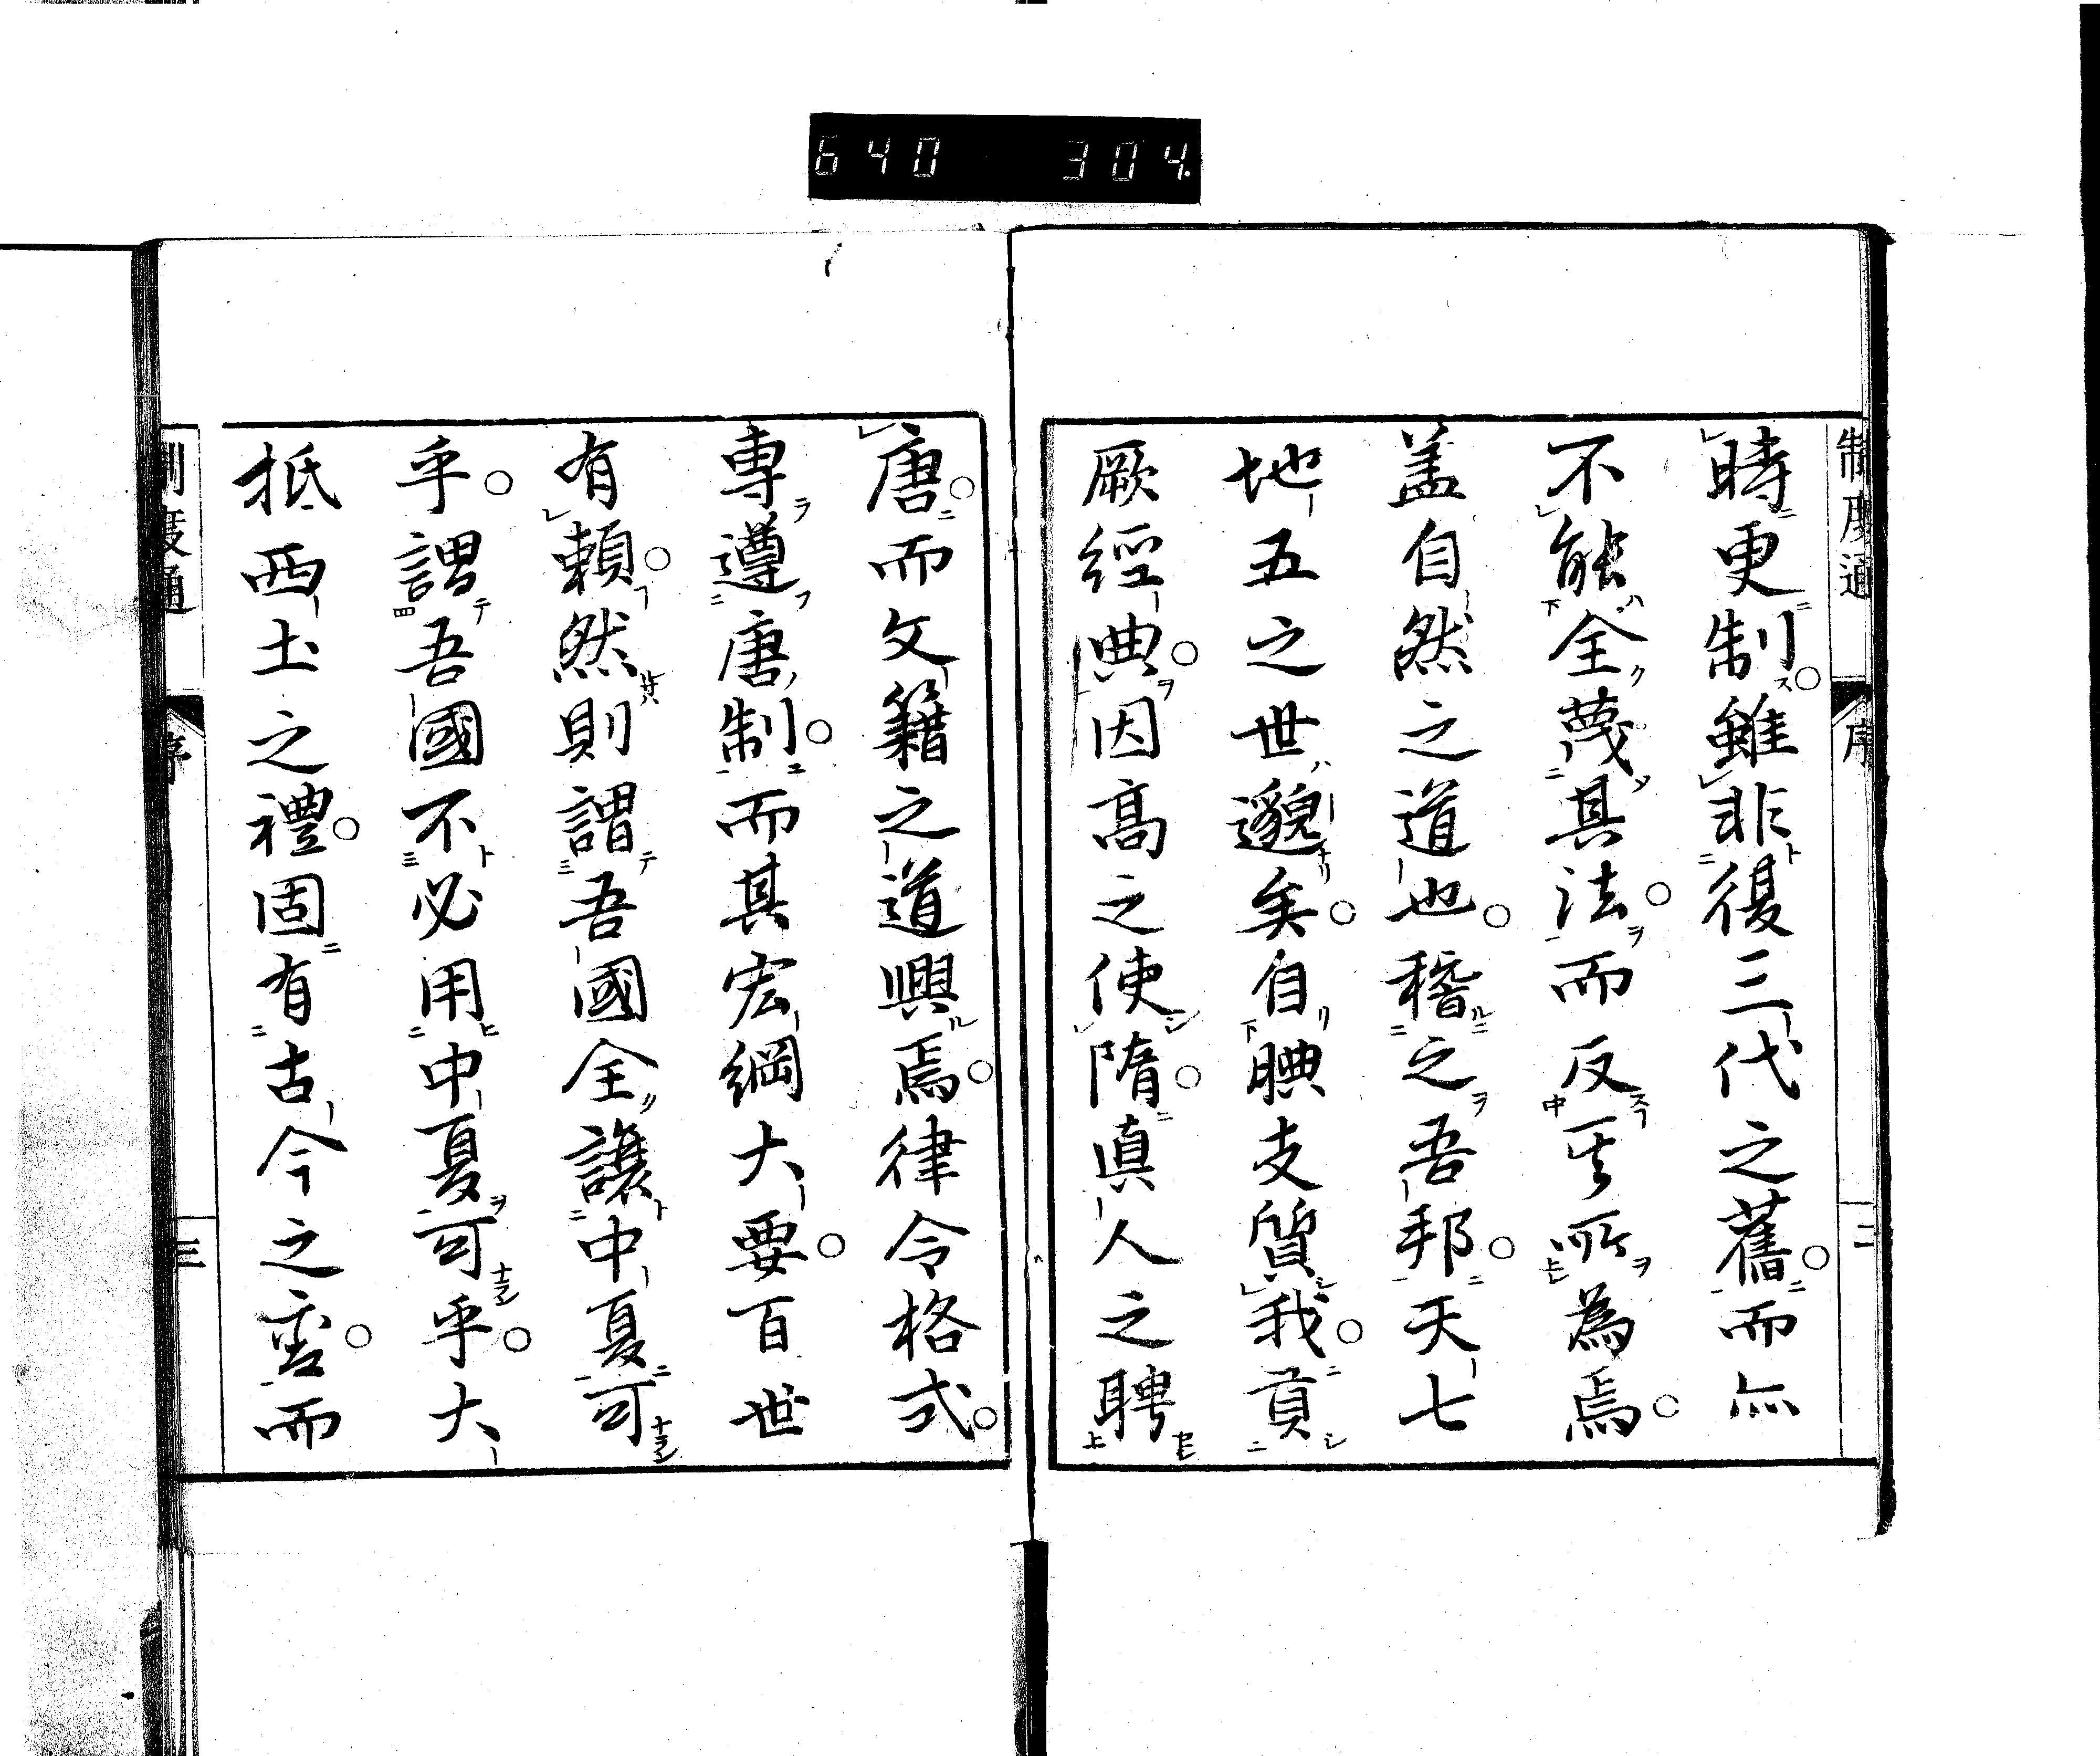 640 304
制度通 序 二
時更制雖非復三代之舊而亦
不能全蔑其法而反其所為焉
盖自然之道也稽之吾邦天七
地五之世邈矣自腆支質我貢
厥經典因高之使隋真人之聘
唐而文籍之道興焉律令格式
専遵唐制而其宏綱大要百世
有頼然則謂吾國全讓中夏可
乎謂吾國不必用中夏可乎大
抵西土之禮固有古今之而
制度通 序 三